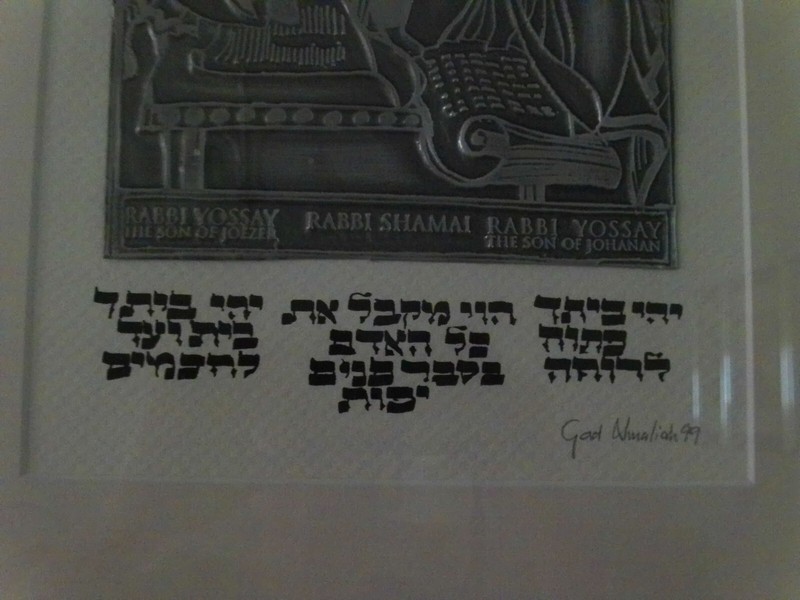 RABBI YOSSAY
THE SON OF JOEZER
RABBI SHAMAI
RABBI YOSSAY
THE SON OF JOHANAN
יהי ביתך
פתוח
לרוחה
הוי מקבל את
כל האדם
בסבר פנים
יפות
יהי ביתך
בית ועד
לחכמים
Gad Almaliah 99